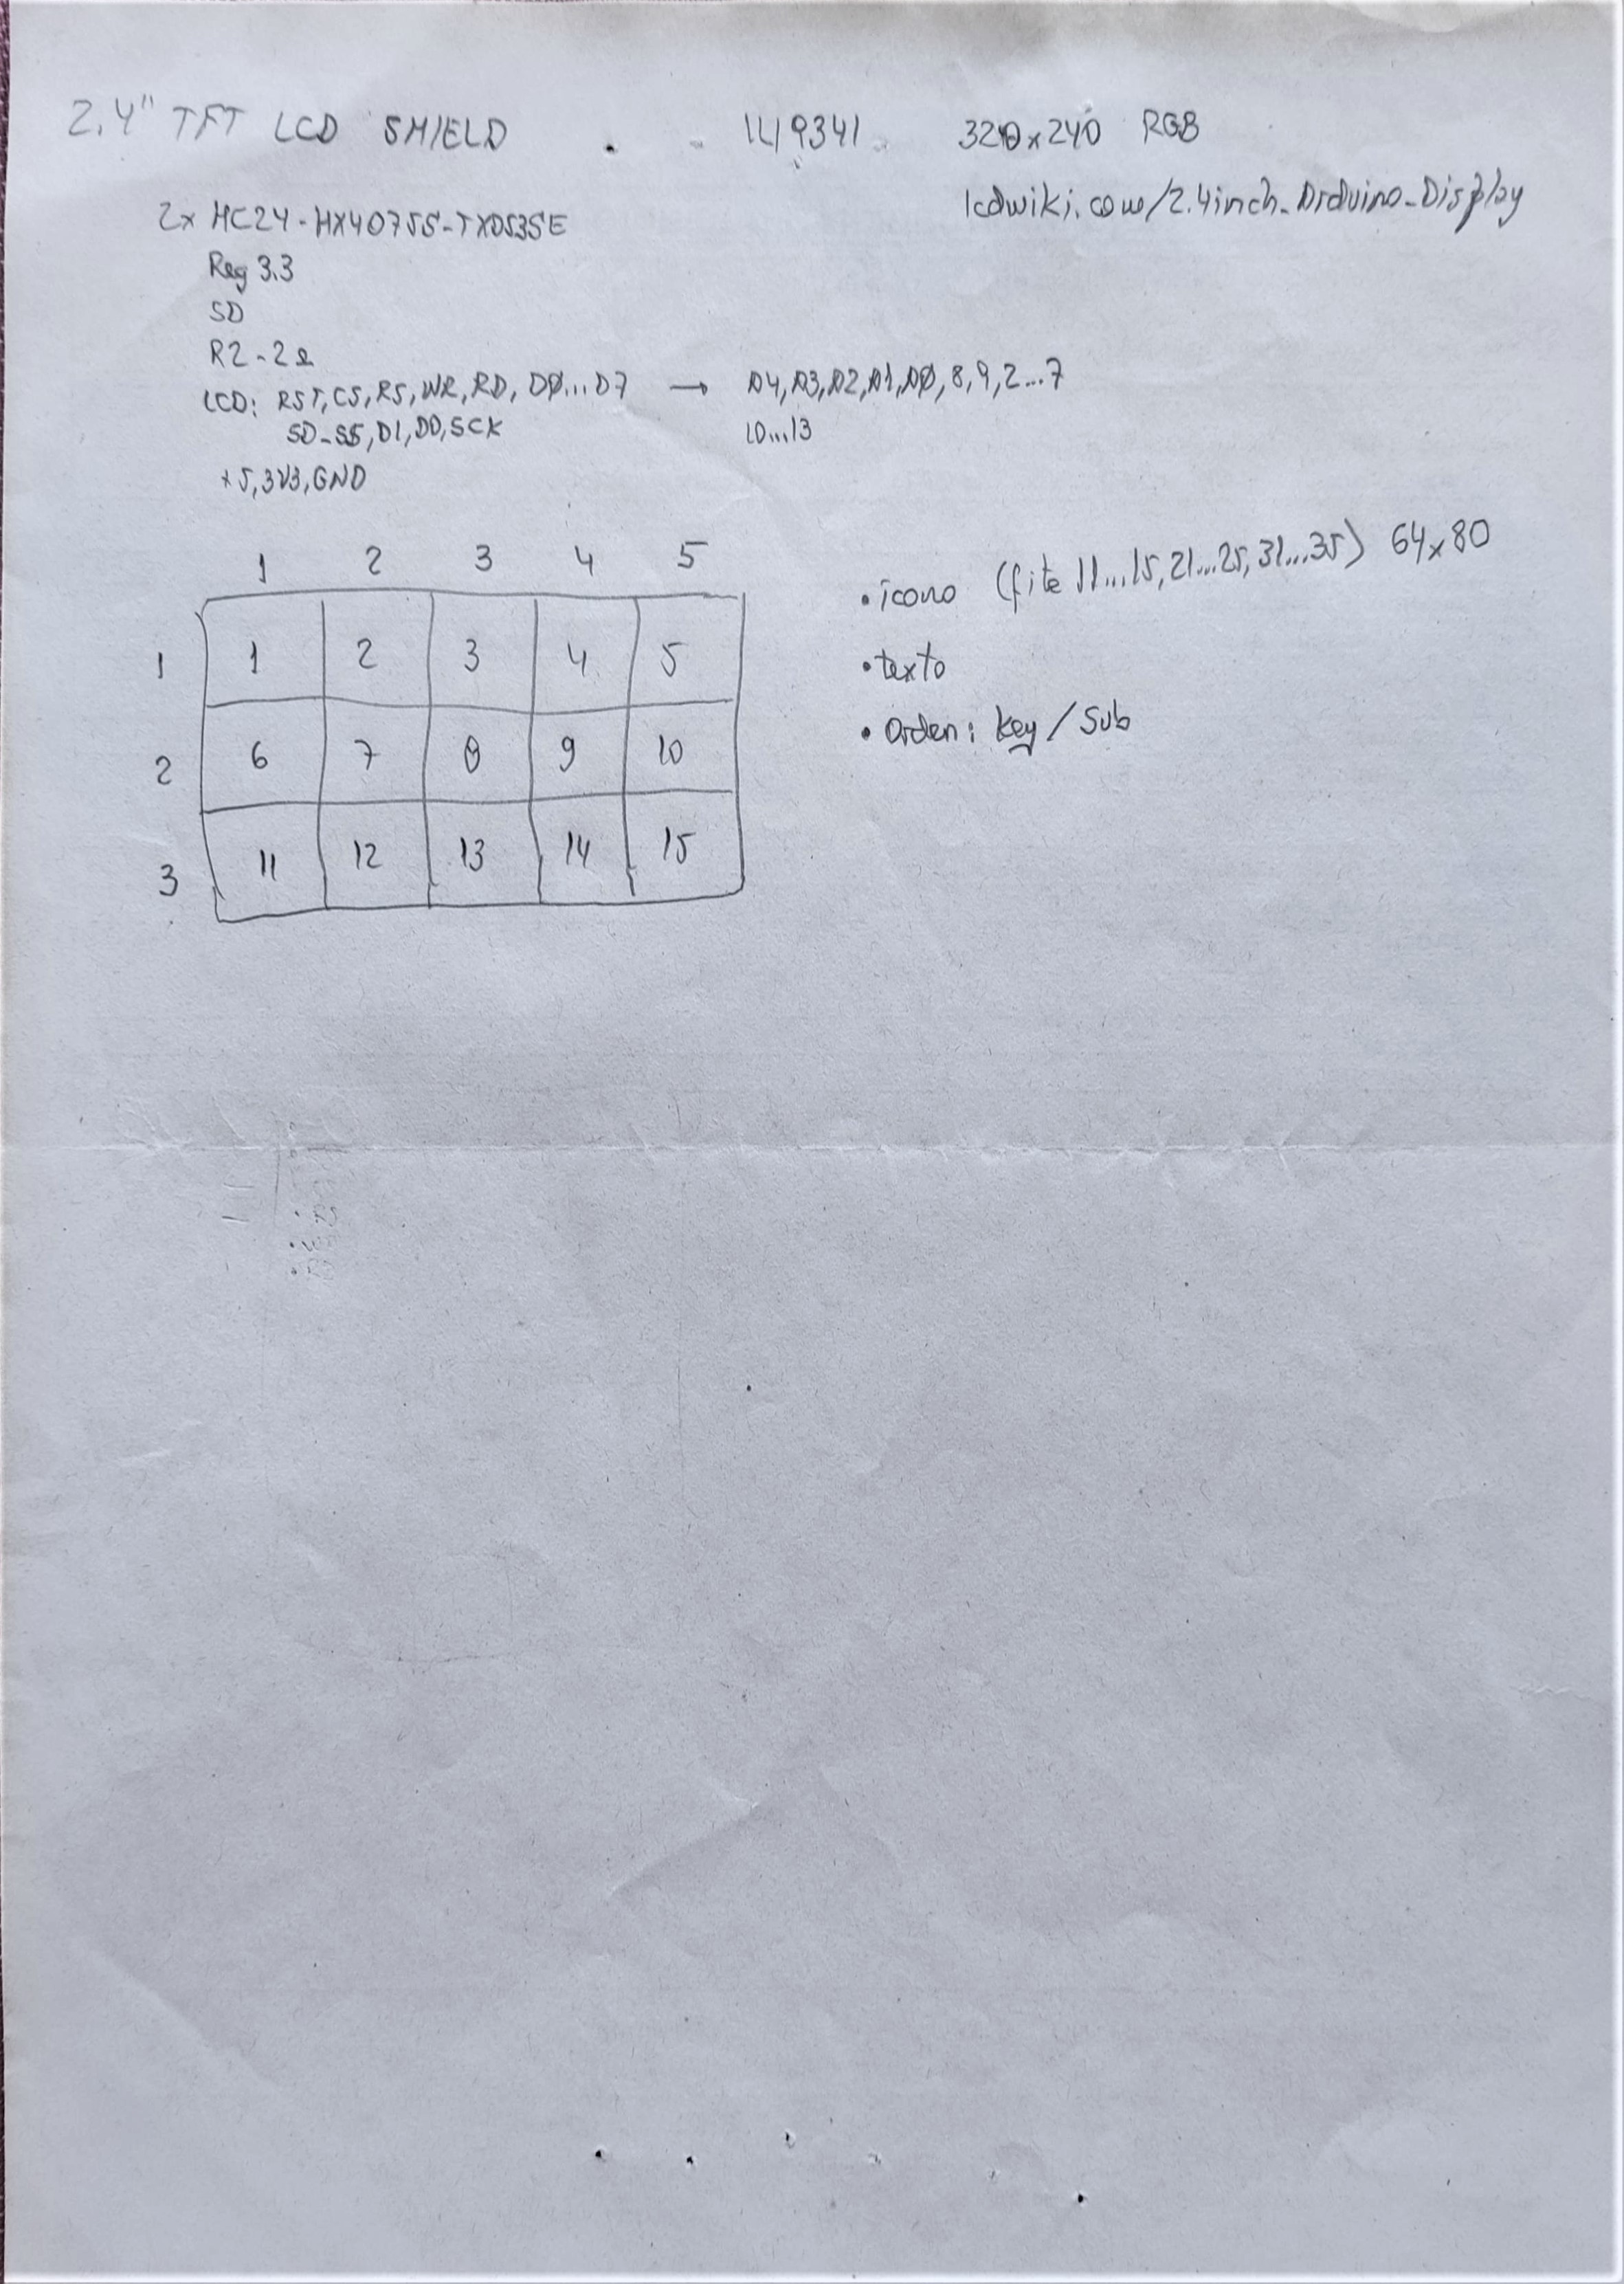 2.4" TFT LCD SHIELD ILI9341 320x240 RGB
lcdwiki.com/2.4inch_Arduino_Display
2x HC24-HX4075S-TXD53SE
Reg 3.3
SD
R2-2Ω
LCD: RST,CS,RS,WR,RD, DØ...D7 → A4,A3,A2,A1,AØ,8,9,2...7
SD_SS,DI,DO,SCK 10...13
+5,3V3,GND
1 2 3 4 5
1 1 2 3 4 5
2 6 7 8 9 10
3 11 12 13 14 15
• icono (file 11...15,21...25,31...35) 64x80
• texto
• Orden: key/Sub